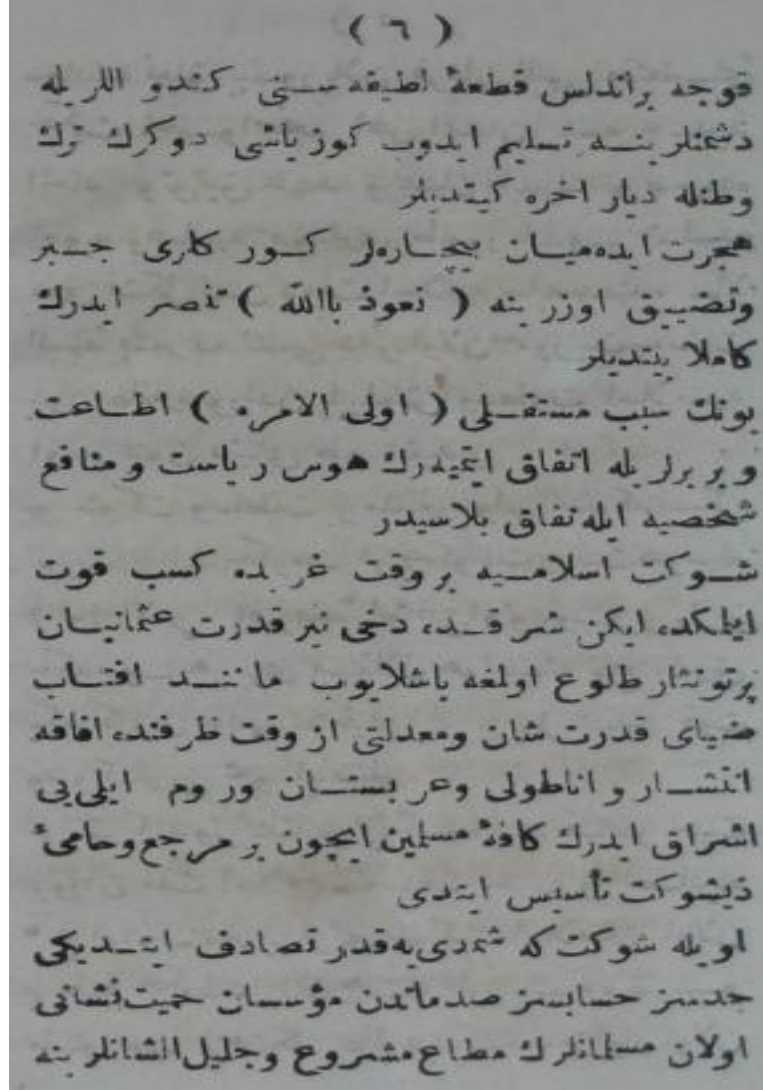 ( ٦ )
قوجه براندلس قطعهٔ لطیفه سنی کندو اللریله
دشمنلرینه تسلیم ایدوب کوز یاشی دوکرك ترك
وطنله دیار اخره کیتدیلر
هجرت ایده میان بیچاره لر کورکاری جبر
وتضییق اوزرینه ( نعوذ باالله ) تنصر ایدرك
کاملا بیتدیلر
بونك سبب مستقلی ( اولی الامره ) اطاعت
و بربرلریله اتفاق ایتمیدرك هوس ریاست و منافع
شخصیه ایله نفاق بلاسیدر
شوکت اسلامیه بروقت غربده کسب قوت
ایلمکده ایکن شرقده دخی نیر قدرت عثمانیان
پرتونثار طلوع اولمغه باشلایوب مانند افتاب
ضیای قدرت شان ومعدلتی از وقت ظرفنده افاقه
انتشار و اناطولی وعربستان وروم ایلی یی
اشراق ایدرك کافهٔ مسلمین ایچون بر مرجع وحامیٔ
ذیشوکت تأسیس ایتدی
اویله شوکت که شمدی یه قدر تصادف ایتدیکی
حدسز حسابسز صدماتدن مؤسسان حمیت نشانی
اولان مسلمانلرك مطاع مشروع وجلیل الشانلرینه